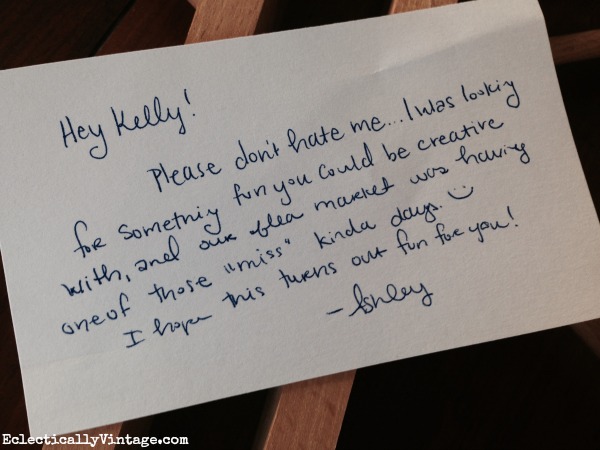 Hey Kelly!
Please don't hate me...I was looking
for something fun you could be creative
with, and our flea market was having
one of those "miss" kinda days. :)
I hope this turns out fun for you!
- Ashley
EclecticallyVintage.com